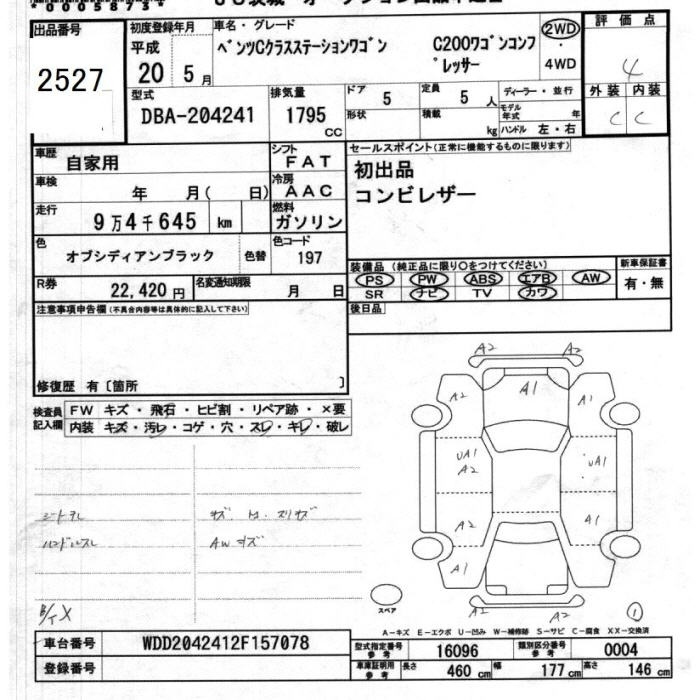 *00058734
出品番号
2527
初度登録年月
平成
20 5月
車名・グレード
ベンツCクラスステーションワゴン C200ワゴンコンプレッサー
2WD
・
4WD
評価点
4
型式
DBA-204241
排気量
1795 CC
ドア 5
定員 5 人
形状
積載 kg
ディーラー・並行
モデル年式 年
ハンドル 左・右
外装 内装
C C
車歴 自家用
シフト FAT
車検 年 月( 日)
冷房 AAC
走行 9万4千645 km
燃料 ガソリン
色 オブシディアンブラック 色替
色コード 197
R券 22,420 円
名変通知期限 月 日
セールスポイント(正常に機能するものに限ります)
初出品
コンビレザー
装備品 (純正品に限り○をつけてください)
PS PW ABS エアB AW
SR ナビ TV カワ
新車保証書
有・無
後日品
注意事項申告欄(不具合内容等は具体的に記入して下さい)
修復歴 有〔箇所 〕
検査員記入欄
FW キズ・飛石・ヒビ割・リペア跡・×要
内装 キズ・汚レ・コゲ・穴・スレ・キレ・破レ
シートヨレ
ハンドルスレ
AWキズ
A2 A2
A2 A1 A1
UA1 A2 UA1
A2 A1
A1
A2 A2
スペア
1
A-キズ E-エクボ U-凹み W-補修跡 S-サビ C-腐食 XX-交換済
車台番号 WDD2042412F157078
登録番号
型式指定番号 参考 16096
類別区分番号 参考 0004
車庫証明用 参考 長さ 460 cm 幅 177 cm 高さ 146 cm